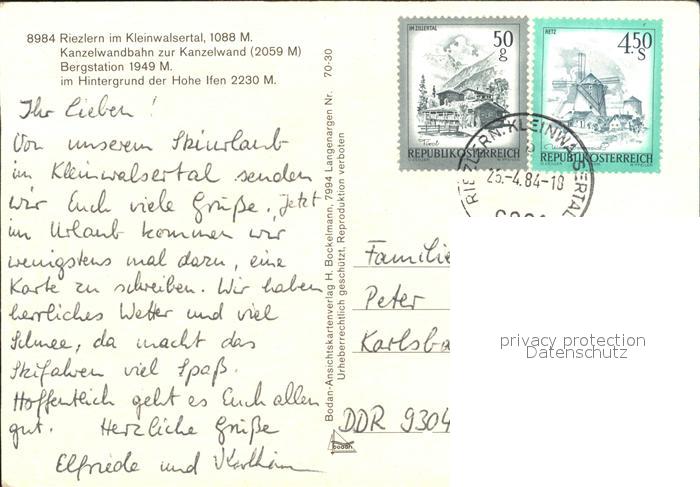 8984 Riezlern im Kleinwalsertal, 1088 M.
Kanzelwandbahn zur Kanzelwand (2059 M)
Bergstation 1949 M.
im Hintergrund der Hohe Ifen 2230 M.
Ihr Lieben!
Von unserem Skiurlaub
im Kleinwalsertal senden
wir Euch viele Grüße. Jetzt
im Urlaub kommen wir
wenigstens mal dazu, eine
Karte zu schreiben. Wir haben
herrliches Wetter und viel
Schnee, da macht das
Skifahren viel Spaß.
Hoffentlich geht es Euch allen
gut. Herzliche Grüße
Elfriede und Karlheinz
70-30
Bodan-Ansichtskartenverlag H. Bockelmann, 7994 Langenargen Nr.
Urheberrechtlich geschützt, Reproduktion verboten
bodan
IM ZILLERTAL
50
g
Tirol
REPUBLIK ÖSTERREICH
RETZ
4.50
S
REPUBLIK ÖSTERREICH
RIEZLERN, KLEINWALSERTAL
25.-4.84-18
Familie
Peter
Karlsba
DDR 9304
privacy protection
Datenschutz